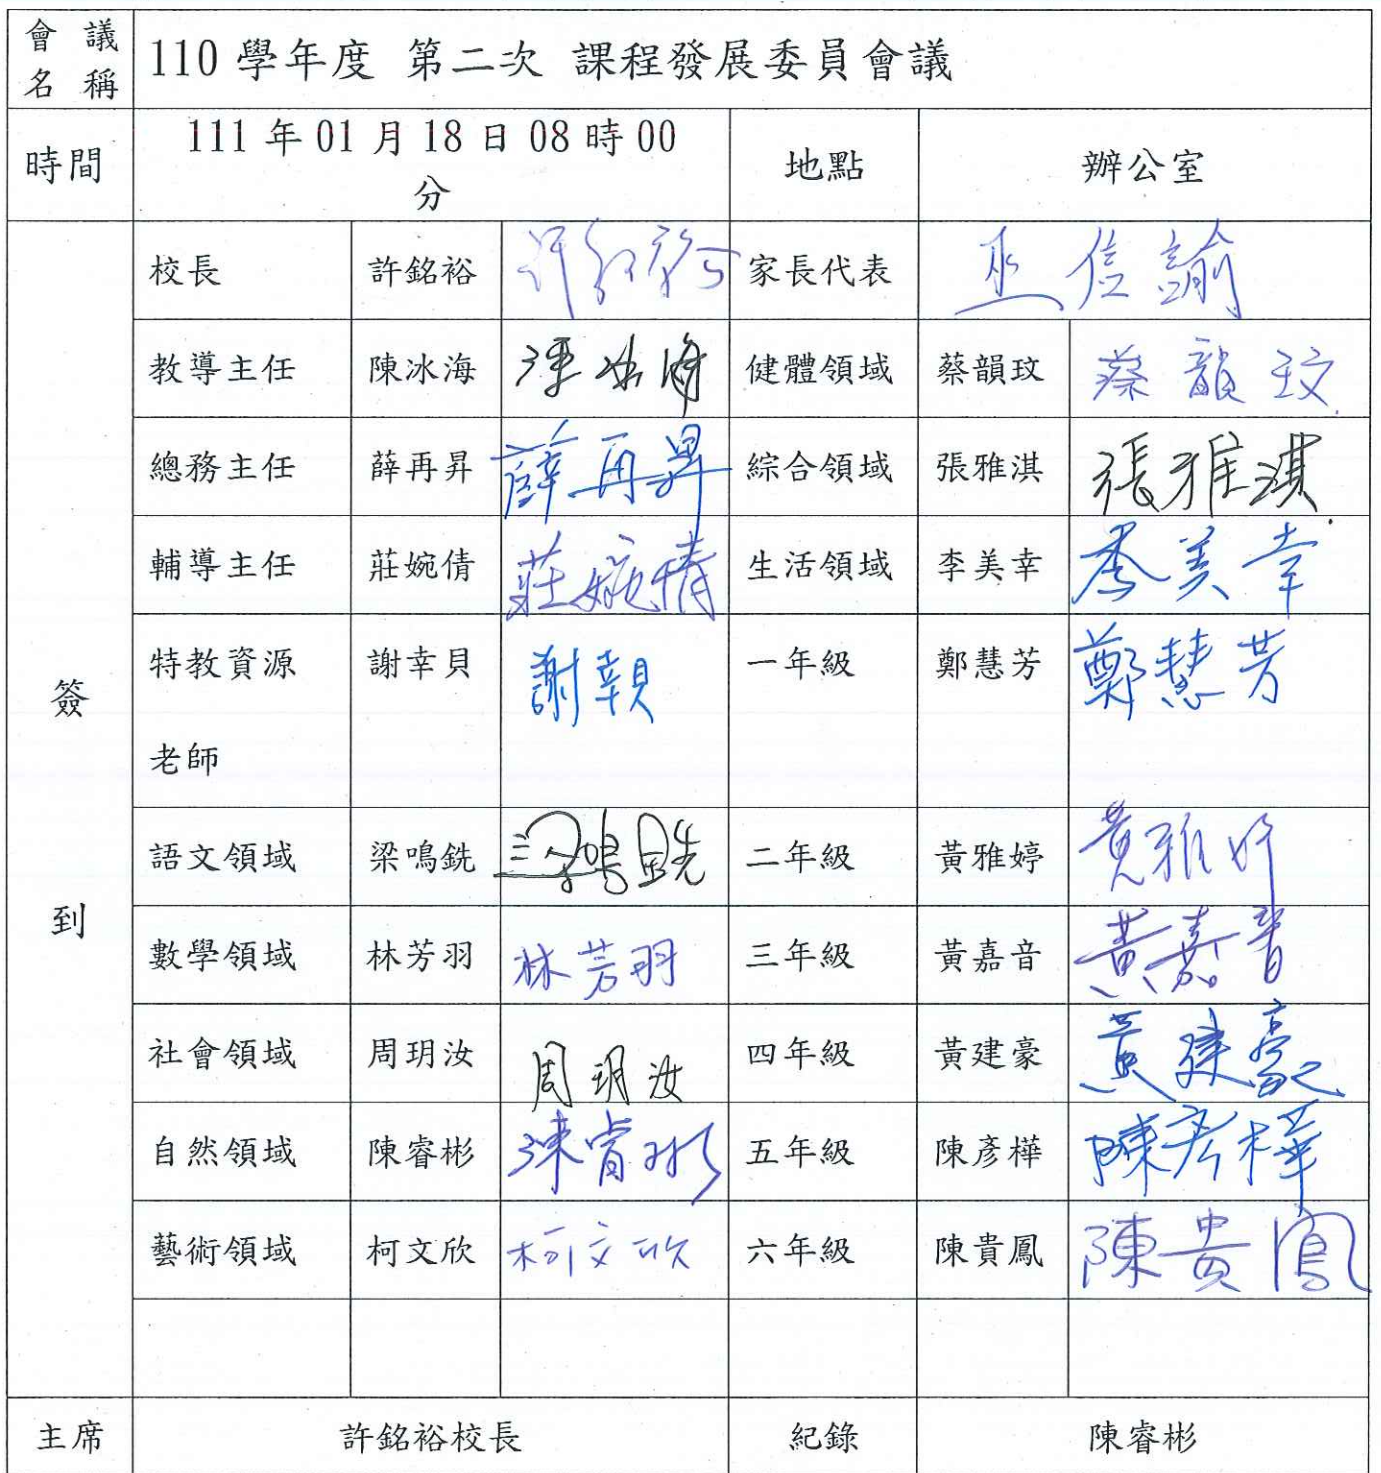 會議名稱 110 學年度 第二次 課程發展委員會議
時間 111 年 01 月 18 日 08 時 00 分 地點 辦公室
簽到
校長 許銘裕 許銘裕 家長代表 巫信諭
教導主任 陳冰海 陳冰海 健體領域 蔡韻玟 蔡韻玟
總務主任 薛再昇 薛再昇 綜合領域 張雅淇 張雅淇
輔導主任 莊婉倩 莊婉倩 生活領域 李美幸 李美幸
特教資源老師 謝幸貝 謝幸貝 一年級 鄭慧芳 鄭慧芳
語文領域 梁鳴銑 梁鳴銑 二年級 黃雅婷 黃雅婷
數學領域 林芳羽 林芳羽 三年級 黃嘉音 黃嘉音
社會領域 周玥汝 周玥汝 四年級 黃建豪 黃建豪
自然領域 陳睿彬 陳睿彬 五年級 陳彥樺 陳彥樺
藝術領域 柯文欣 柯文欣 六年級 陳貴鳳 陳貴鳳
主席 許銘裕校長 紀錄 陳睿彬